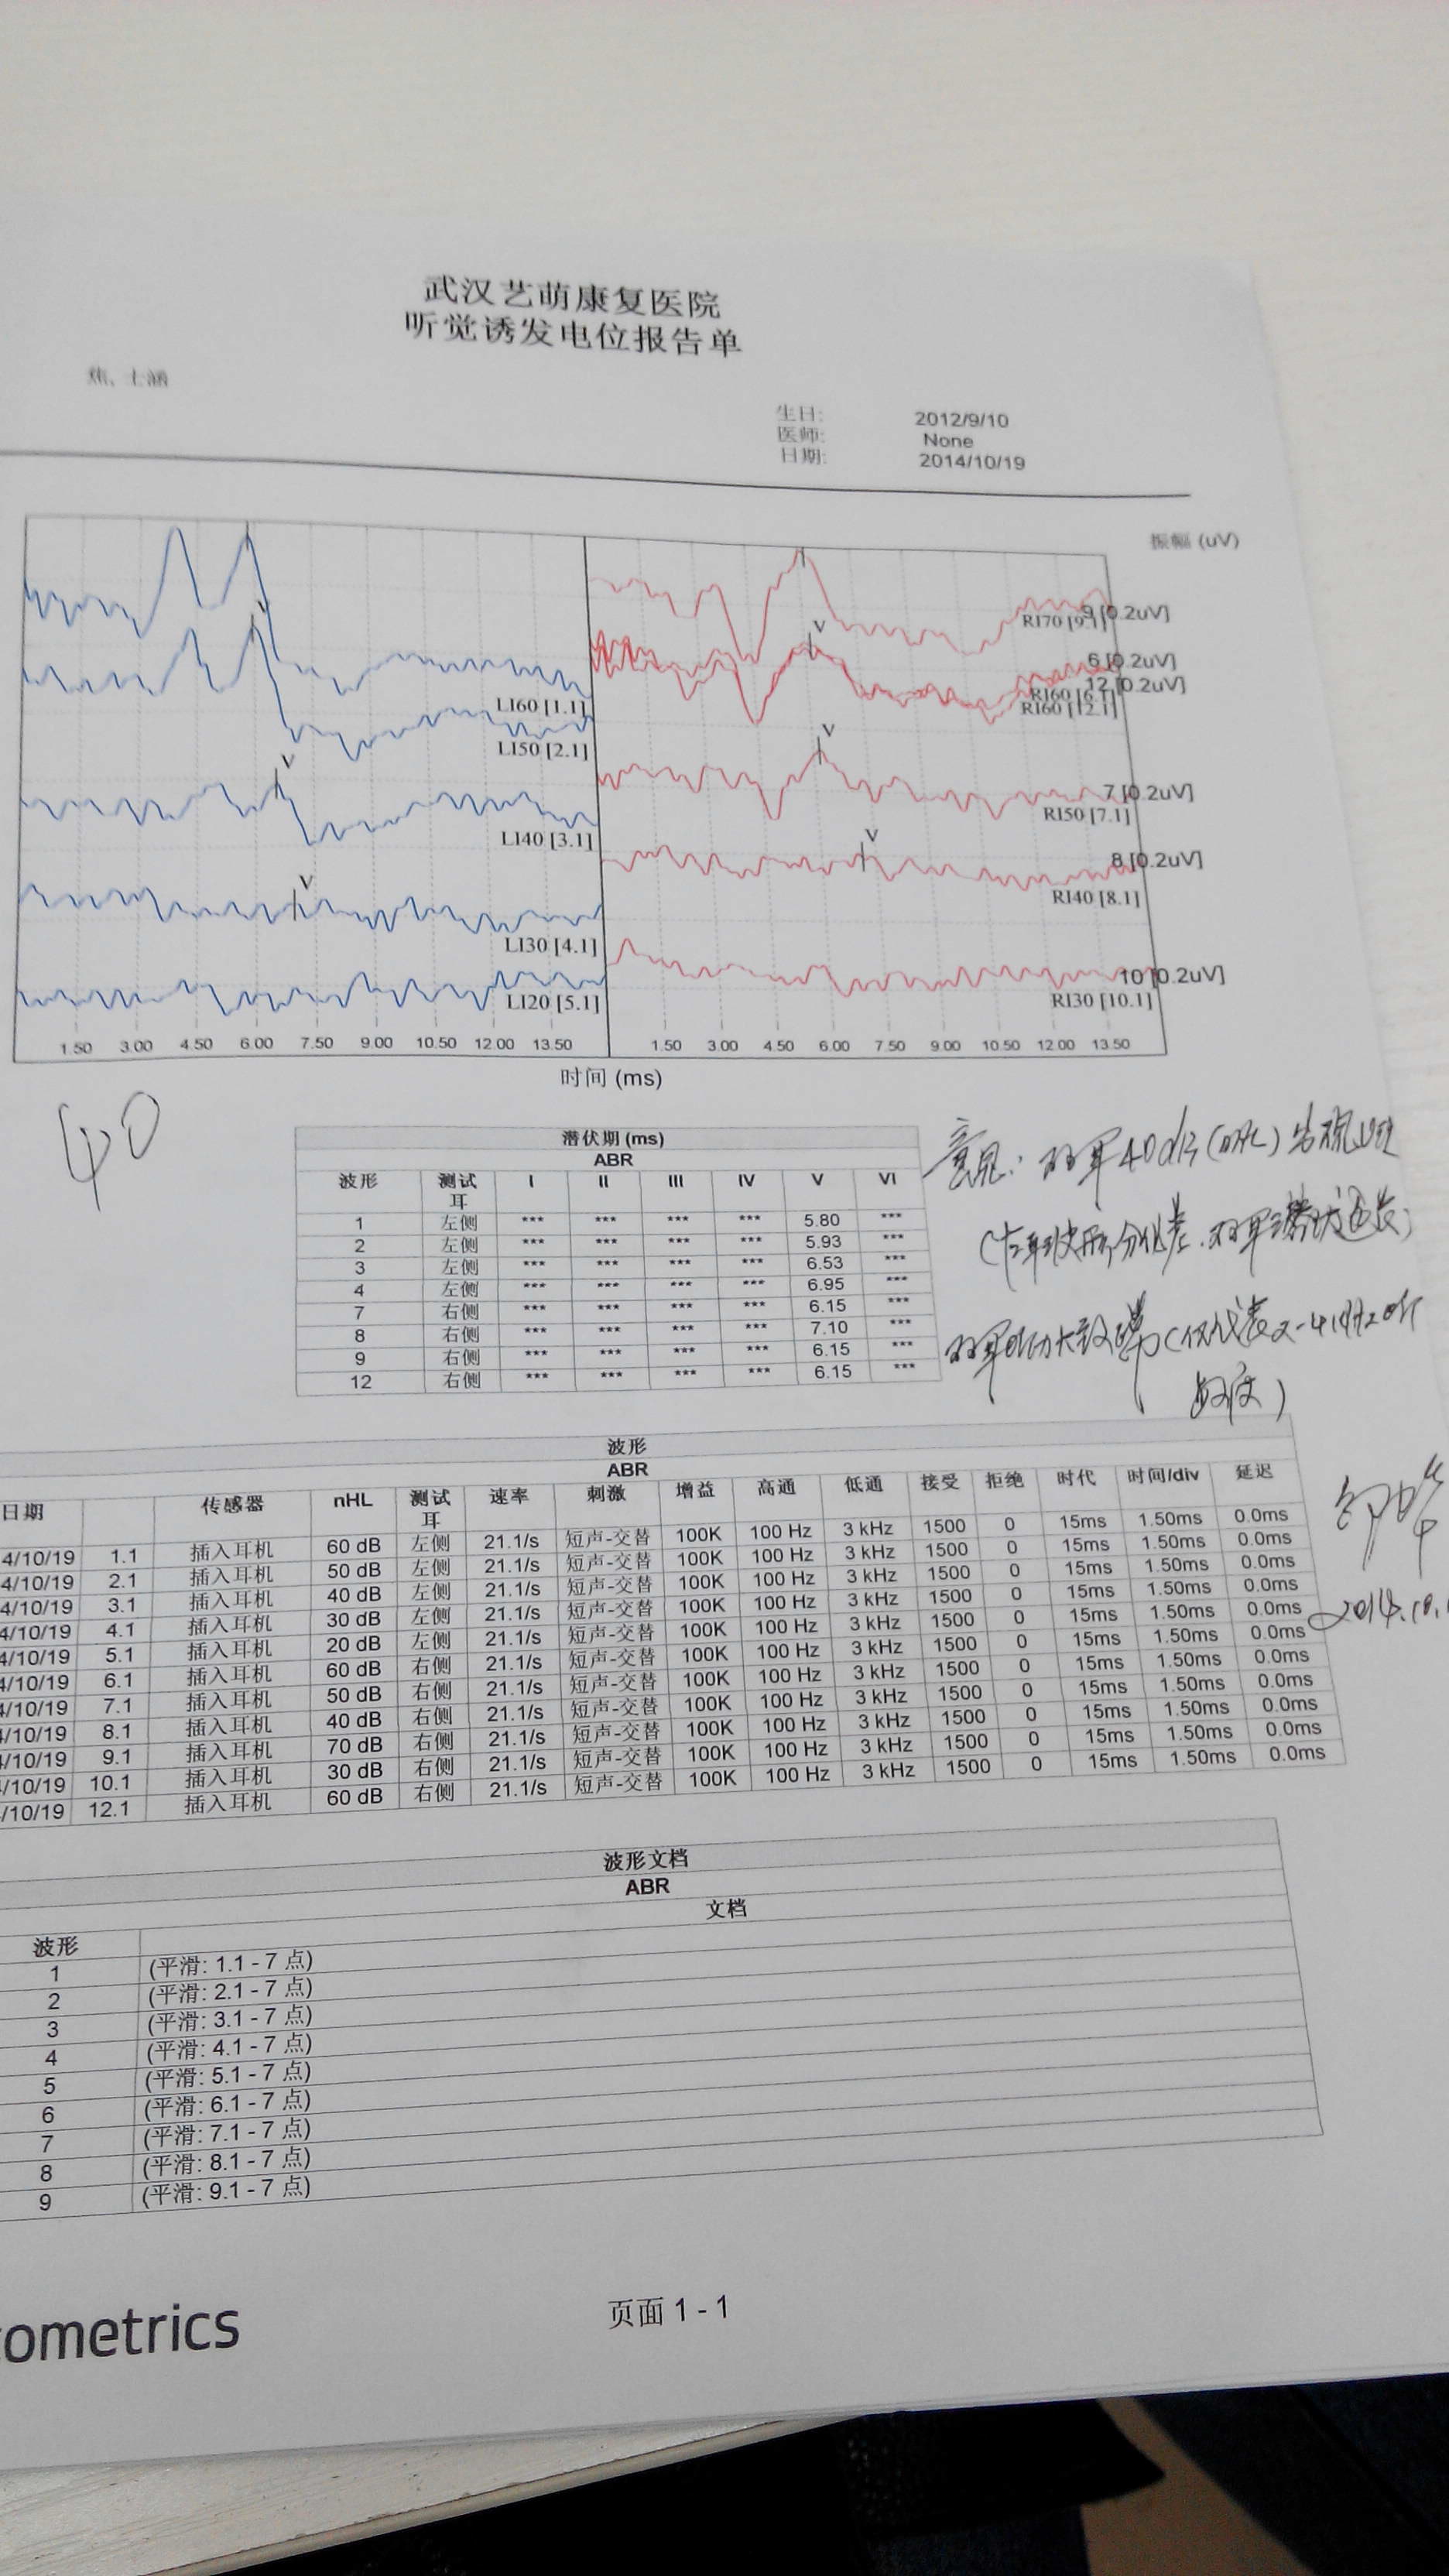 武汉艺萌康复医院
听觉诱发电位报告单
焦, 士涵
生日: 2012/9/10
医师: None
日期: 2014/10/19
振幅 (uV)
RI70 [9.1] 9 [0.2uV]
6 [0.2uV]
RI60 [6.1] 12 [0.2uV]
V
LI60 [1.1] RI60 [12.1]
LI50 [2.1]
V
V
7 [0.2uV]
LI40 [3.1] RI50 [7.1]
V
8 [0.2uV]
V
RI40 [8.1]
LI30 [4.1]
10 [0.2uV]
LI20 [5.1] RI30 [10.1]
1.50 3.00 4.50 6.00 7.50 9.00 10.50 12.00 13.50 1.50 3.00 4.50 6.00 7.50 9.00 10.50 12.00 13.50
时间 (ms)
40
潜伏期 (ms)
ABR
波形 测试耳 I II III IV V VI
1 左侧 *** *** *** *** 5.80 ***
2 左侧 *** *** *** *** 5.93 ***
3 左侧 *** *** *** *** 6.53 ***
4 左侧 *** *** *** *** 6.95 ***
7 右侧 *** *** *** *** 6.15 ***
8 右侧 *** *** *** *** 7.10 ***
9 右侧 *** *** *** *** 6.15 ***
12 右侧 *** *** *** *** 6.15 ***
意见: 双耳40dB(nHL)
波形分化差. 双耳
双耳听力大致 (仅代表2-4kHz听
敏度)
2014.10.
波形
ABR
日期 传感器 nHL 测试耳 速率 刺激 增益 高通 低通 接受 拒绝 时代 时间/div 延迟
4/10/19 1.1 插入耳机 60 dB 左侧 21.1/s 短声-交替 100K 100 Hz 3 kHz 1500 0 15ms 1.50ms 0.0ms
4/10/19 2.1 插入耳机 50 dB 左侧 21.1/s 短声-交替 100K 100 Hz 3 kHz 1500 0 15ms 1.50ms 0.0ms
4/10/19 3.1 插入耳机 40 dB 左侧 21.1/s 短声-交替 100K 100 Hz 3 kHz 1500 0 15ms 1.50ms 0.0ms
4/10/19 4.1 插入耳机 30 dB 左侧 21.1/s 短声-交替 100K 100 Hz 3 kHz 1500 0 15ms 1.50ms 0.0ms
4/10/19 5.1 插入耳机 20 dB 左侧 21.1/s 短声-交替 100K 100 Hz 3 kHz 1500 0 15ms 1.50ms 0.0ms
4/10/19 6.1 插入耳机 60 dB 右侧 21.1/s 短声-交替 100K 100 Hz 3 kHz 1500 0 15ms 1.50ms 0.0ms
4/10/19 7.1 插入耳机 50 dB 右侧 21.1/s 短声-交替 100K 100 Hz 3 kHz 1500 0 15ms 1.50ms 0.0ms
4/10/19 8.1 插入耳机 40 dB 右侧 21.1/s 短声-交替 100K 100 Hz 3 kHz 1500 0 15ms 1.50ms 0.0ms
/10/19 9.1 插入耳机 70 dB 右侧 21.1/s 短声-交替 100K 100 Hz 3 kHz 1500 0 15ms 1.50ms 0.0ms
/10/19 10.1 插入耳机 30 dB 右侧 21.1/s 短声-交替 100K 100 Hz 3 kHz 1500 0 15ms 1.50ms 0.0ms
/10/19 12.1 插入耳机 60 dB 右侧 21.1/s 短声-交替 100K 100 Hz 3 kHz 1500 0 15ms 1.50ms 0.0ms
波形文档
ABR
波形 文档
1 (平滑: 1.1 - 7 点)
2 (平滑: 2.1 - 7 点)
3 (平滑: 3.1 - 7 点)
4 (平滑: 4.1 - 7 点)
5 (平滑: 5.1 - 7 点)
6 (平滑: 6.1 - 7 点)
7 (平滑: 7.1 - 7 点)
8 (平滑: 8.1 - 7 点)
9 (平滑: 9.1 - 7 点)
ometrics
页面 1 - 1